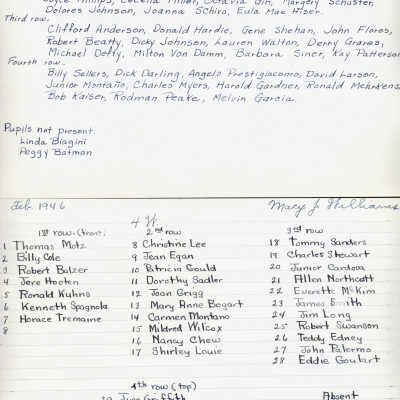 Dolores Johnson, Joanna Schiro, Eula Mae Hiser.
Third row.
Clifford Anderson, Donald Hardie, Gene Shehan, John Flores,
Robert Beatty, Dicky Johnson, Lauren Walton, Derry Graves,
Michael Doffy, Milton Von Damm, Barbara Siner, Kay Patterson
Fourth row.
Billy Sellers, Dick Darling, Angelo Prestigiacomo, David Larson,
Junior Montaño, Charles Myers, Harold Gardner, Ronald Mehrkens,
Bob Kaiser, Rodman Peake, Melvin Garcia.
Pupils not present.
Linda Biagini
Peggy Batman
Feb. 1946 Macys J. Williams
4 W.
1st row (front) 2nd row 3rd row
1 Thomas Motz 8 Christine Lee 18 Tommy Sanders
2 Billy Cole 9 Jean Egan 19 Charles Stewart
3 Robert Balzer 10 Patricia Gould 20 Junior Cardoza
4 Jere Hooten 11 Dorothy Sadler 21 Allen Northcott
5 Ronald Kuhns 12 Joan Grigg 22 Everette McKim
6 Kenneth Spagnola 13 Mary Anne Bogart 23 James Smith
7 Horace Tremaine 14 Carmen Montano 24 Jim Long
8 15 Mildred Wilcox 25 Robert Swanson
16 Nancy Chew 26 Teddy Edney
17 Shirley Louie 27 John Palermo
28 Eddie Goulart
4th row (top) Absent